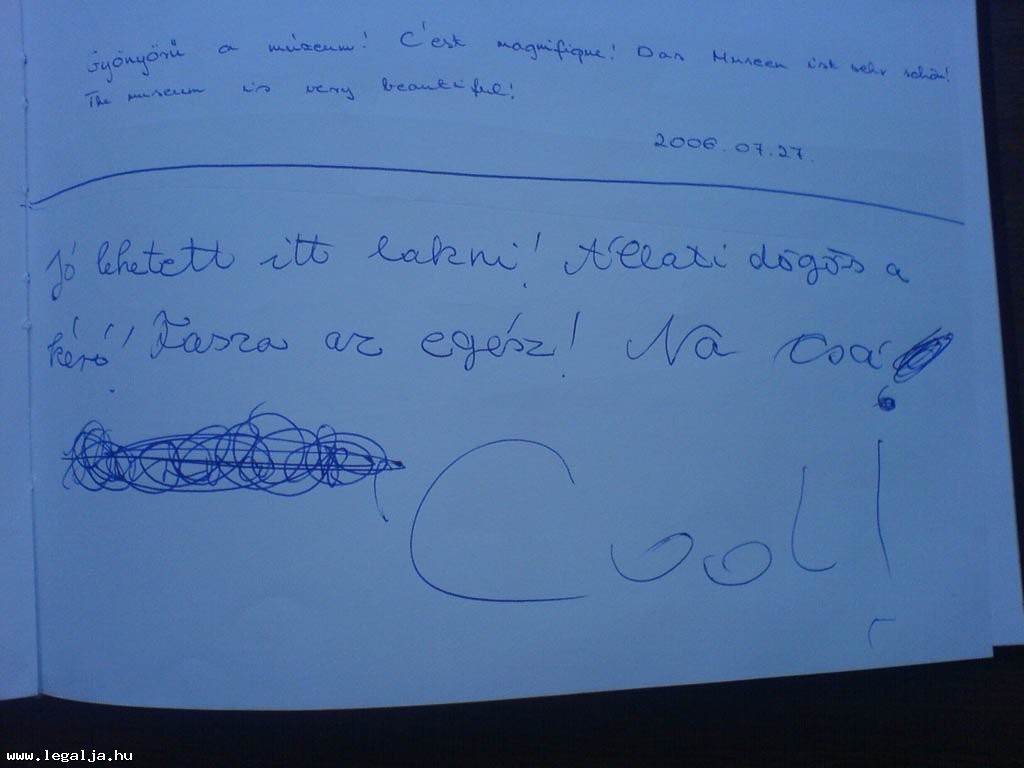 Gyönyörű a múzeum! C'est magnifique! Das Museen ist sehr schön!
The museum is very beautiful!
2006.07.27.
Jó lehetett itt lakni! Állati dögös a
kéró! Fasza az egész! Na csá
Cool!
www.legalja.hu